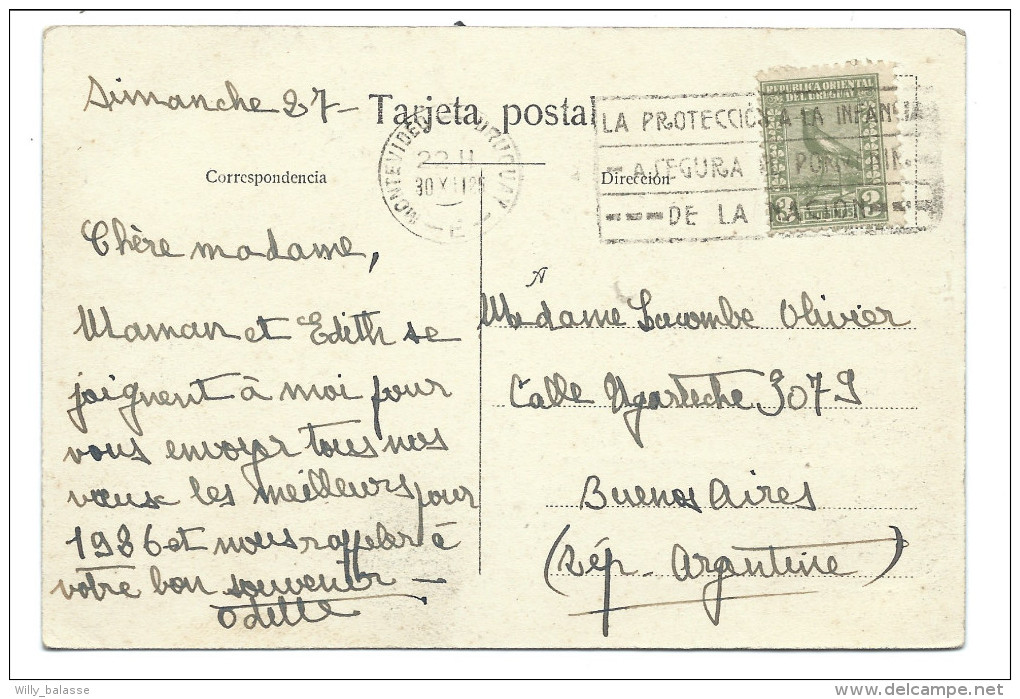 Dimanche 27-
Tarjeta postal
REPUBLICA ORIENTAL
DEL URUGUAY
LA PROTECCIÓN A LA INFANCIA
ASEGURA EL PORVENIR
---DE LA NACION---
MONTEVIDEO URUGUAY
30 XII
Correspondencia
Dirección
Chère madame,
Maman et Edith se
joignent à moi pour
vous envoyer tous nos
vœux les meilleurs pour
1936 et nous rappeler à
votre bon souvenir -
Odette
A
Madame Lacombe Olivier
Calle Ugarteche 3079
Buenos Aires
(Rép. Argentine)
Willy_balasse
delcampe.net